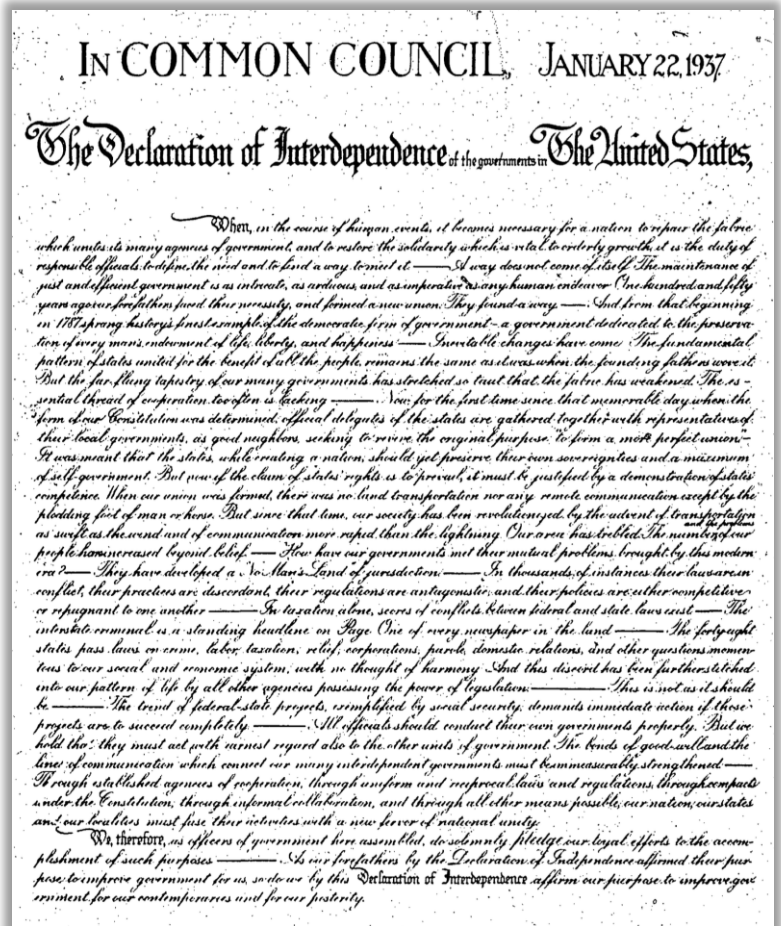 IN COMMON COUNCIL, JANUARY 22, 1937.
The Declaration of Interdependence of the governments in The United States,
When, in the course of human events, it becomes necessary for a nation to repair the fabric
which unites its many agencies of government, and to restore the solidarity which is vital to orderly growth, it is the duty of
responsible officials to define the need and to find a way to meet it —— A way does not come of itself The maintenance of
just and efficient government is as intricate, as arduous, and as imperative as any human endeavor One hundred and fifty
years ago our forefathers faced their necessity, and formed a new union. They found a way ——. And from that beginning
in 1787 sprang history's finest example of the democratic form of government – a government dedicated to the preserva-
tion of every man's endowment of life, liberty, and happiness —— Inevitable changes have come The fundamental
pattern of states united for the benefit of all the people, remains the same as it was when the founding fathers wove it
But the far-flung tapestry of our many governments has stretched so taut that the fabric has weakened. The es-
sential thread of cooperation too often is lacking ——. Now for the first time since that memorable day when the
form of our Constitution was determined, official delegates of the states are gathered together with representatives of
their local governments, as good neighbors, seeking to revive the original purpose, "to form a more perfect union" –
It was meant that the states, while creating a nation, should yet preserve their own sovereignties and a maximum
of self-government. But now if the claim of states' rights is to prevail, it must be justified by a demonstration of states'
competence. When our union was formed, there was no land transportation nor any remote communication except by the
plodding foot of man or horse. But since that time, our society has been revolutionized by the advent of transportation
as swift as the wind and of communication more rapid than the lightning Our area has trebled. The number of our
and the problems
people has increased beyond belief. —— How have our governments met their mutual problems brought by this modern
era? —— They have developed a No Man's Land of jurisdiction. —— In thousands of instances their laws are in
conflict, their practices are discordant, their regulations are antagonistic, and their policies are either competitive
or repugnant to one another —— In taxation alone, scores of conflicts between federal and state laws exist —— The
interstate criminal is a standing headline on Page One of every newspaper in the land —— The forty-eight
states pass laws on crime, labor, taxation, relief, corporations, parole, domestic relations, and other questions momen-
tous to our social and economic system, with no thought of harmony And this discord has been further stitched
into our pattern of life by all other agencies possessing the power of legislation. —— This is not as it should
be. —— The trend of federal-state projects, exemplified by social security, demands immediate action if those
projects are to succeed completely ——. All officials should conduct their own governments properly. But we
hold that they must act with earnest regard also to the other units of government. The bonds of good-will and the
lines of communication which connect our many interdependent governments must be immeasurably strengthened ——
Through established agencies of cooperation, through uniform and reciprocal laws and regulations, through compacts
under the Constitution, through informal collaboration, and through all other means possible, our nation, our states
and our localities must fuse their activities with a new fervor of national unity.
We, therefore, as officers of government here assembled, do solemnly pledge our loyal efforts to the accom-
plishment of such purposes —— As our forefathers by the Declaration of Independence affirmed their pur-
pose to improve government for us, so do we by this Declaration of Interdependence affirm our purpose to improve gov
ernment for our contemporaries and for our posterity.